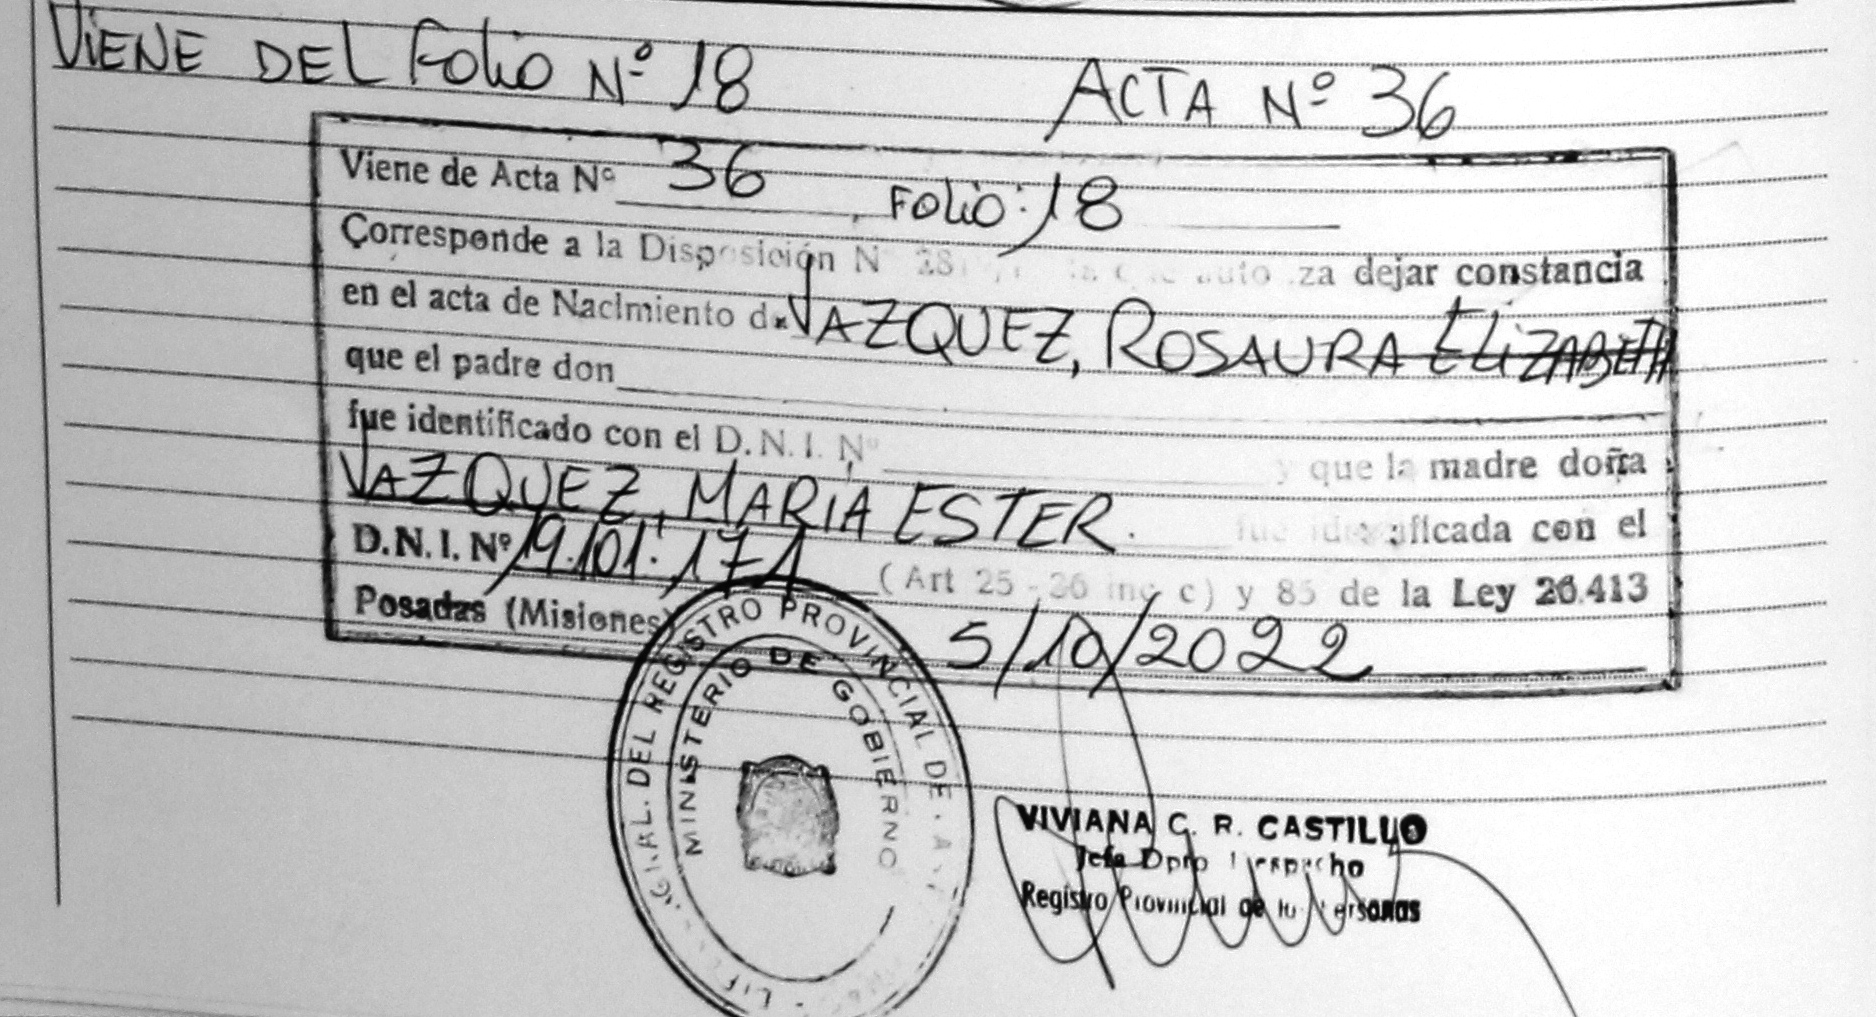 VIENE DEL Folio Nº 18 ACTA Nº 36
Viene de Acta Nº 36, Folio: 18
Corresponde a la Disposición N 28 dejar constancia
en el acta de Nacimiento de VAZQUEZ, ROSAURA ELIZABETH
que el padre don
fue identificado con el D.N.I. Nº y que la madre doña
VAZQUEZ, MARIA ESTER. fue identificada con el
D.N.I. Nº 19.101.171 (Art 25 - 36 inc c) y 85 de la Ley 26.413
Posadas (Misiones) 5/10/2022
DEL REGISTRO PROVINCIAL DE
MINISTERIO DE GOBIERNO
VIVIANA C. R. CASTILLO
Jefa Dpto Despacho
Registro Provincial de las Personas